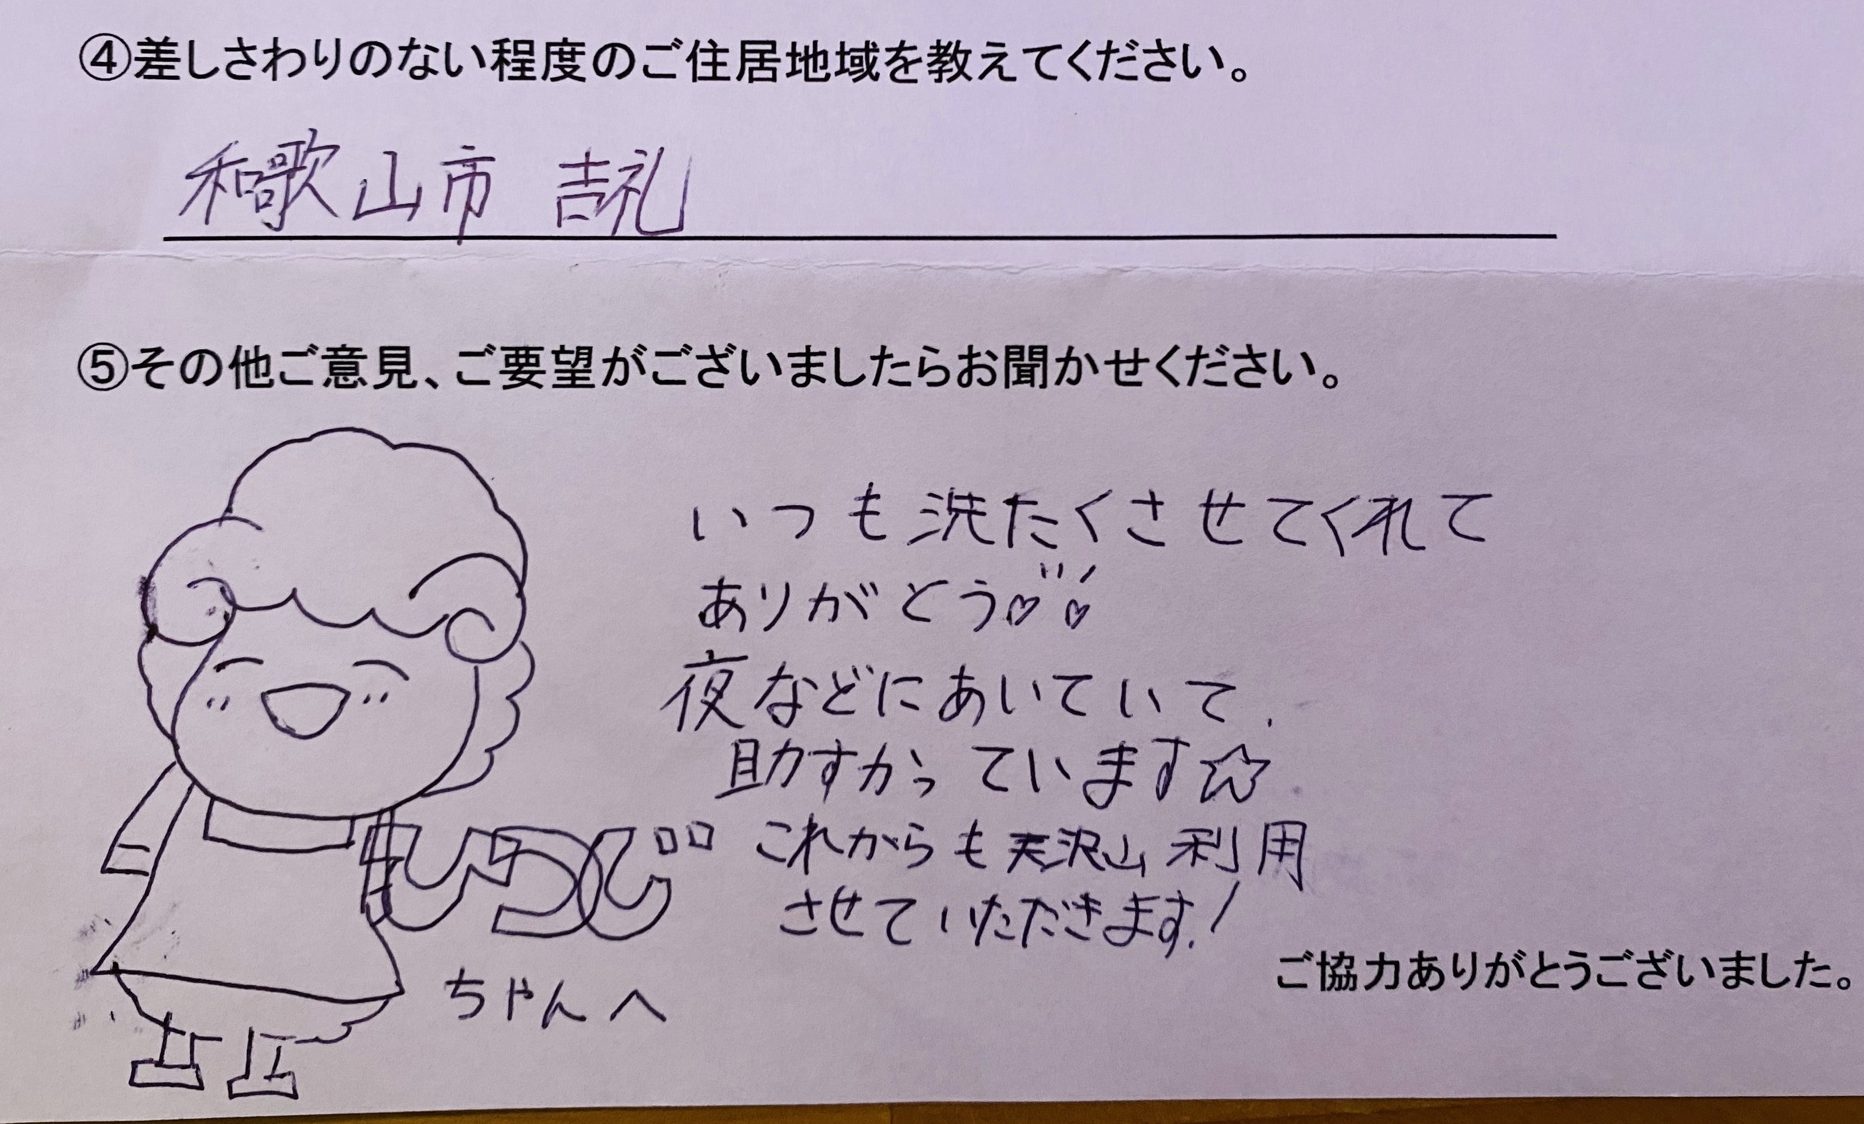 ④差しさわりのない程度のご住居地域を教えてください。
和歌山市 吉礼
⑤その他ご意見、ご要望がございましたらお聞かせください。
いつも洗たくさせてくれて
ありがとう♡♡
夜などにあいていて、
助すかっています☆
これからも沢山利用
させていただきます!
ひつじ
ちゃんへ
ご協力ありがとうございました。